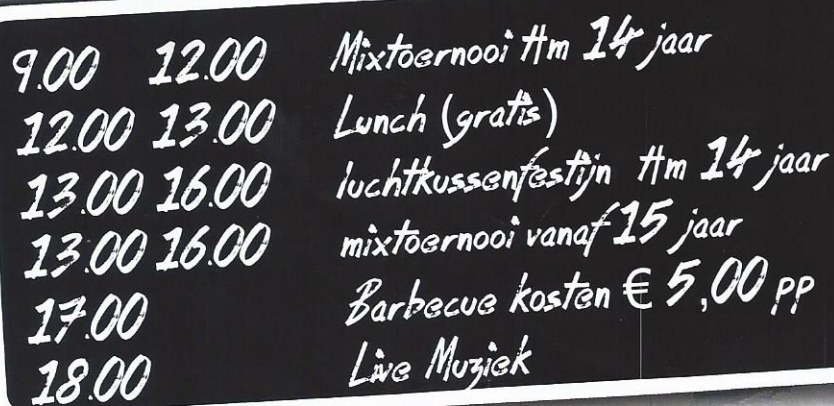 9.00 12.00 Mixtoernooi ttm 14 jaar
12.00 13.00 Lunch (gratis)
13.00 16.00 luchtkussenfestijn ttm 14 jaar
13.00 16.00 mixtoernooi vanaf 15 jaar
17.00 Barbecue kosten € 5,00 pp
18.00 Live Muziek